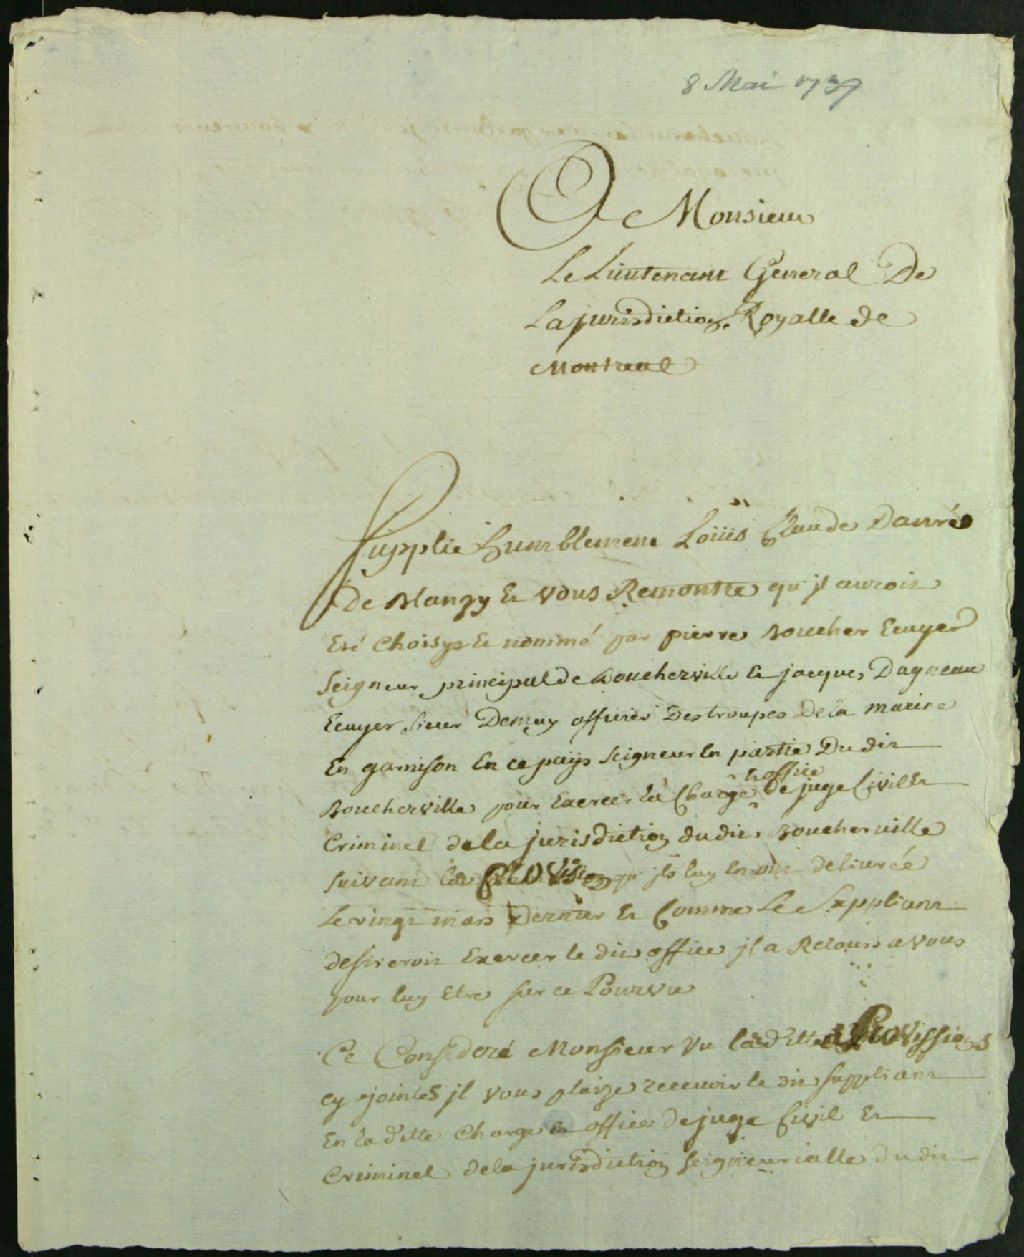 8 Mai 1739
A Monsieur
Le Lieutenant General De
La jurisdiction Royalle de
Montreal
Supplie humblement Loüis Claude Danré
De Blanzy Et vous Remontre qu'jl auroit
Eté Choisy Et nommé par pierre Boucher Ecuyer
Seigneur principal de Boucherville Et jacques Dagneau
Ecuyer Sieur Demuy officier Des troupes De la marine
En garnison En ce païs Seigneur En partie Du dit
Et office
Boucherville pour Exercer la Charge De juge Civil Et
Criminel de la jurisdiction du dit Boucherville
suivant les provisions qu'jls luy En ont delivrée
Le vingt mars Dernier Et Comme Le Suppliant
desireroit Exercer le dit office jl a Recours a vous
pour luy Etre sur ce Pourvu
Ce Consideré Monsieur Vu la ditte Provission
cy jointes jl vous plaize recevoir le dit suppliant
En la ditte Charge Et office De juge Civil Et
Criminel de la jurisdiction seigneurialle du dit